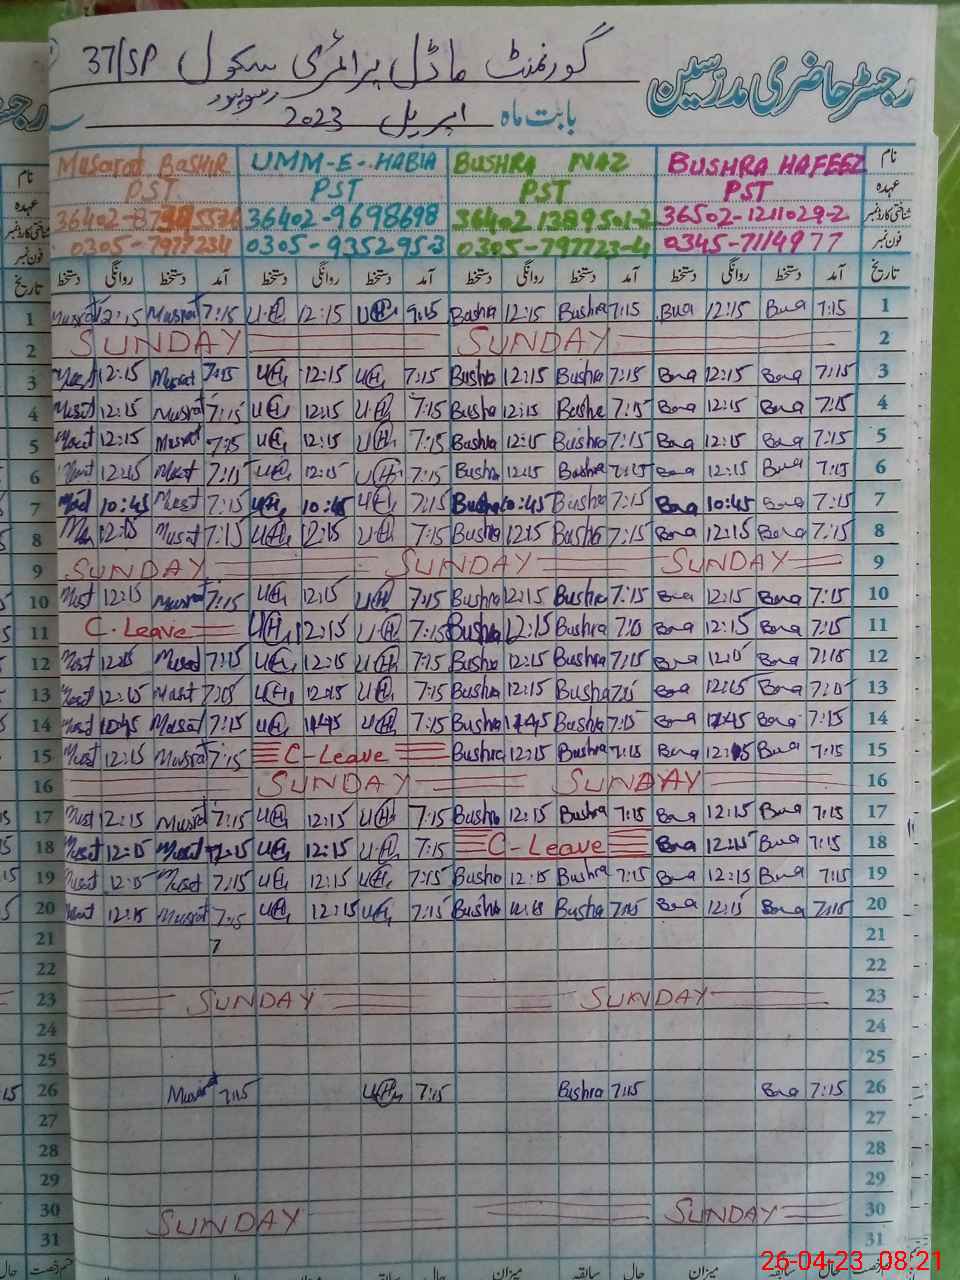 رجسٹر حاضری مدرسین
گورنمنٹ ماڈل پرائمری سکول 37/SP
بابت ماہ اپریل 2023
نام BUSHRA HAFEEZ BUSHRA NAZ UMM-E-HABIA Musarat BASHIR نام
عہدہ PST PST PST PST عہدہ
شناختی کارڈ نمبر 36502-1211029-2 36402 1389501-2 36402-9698698 شناختی کارڈ نمبر
فون نمبر 0345-7114977 0305-797723-4 0305-9352953 0305-7977234 فون نمبر
تاریخ دستخط روانگی دستخط آمد دستخط روانگی دستخط آمد دستخط روانگی دستخط آمد دستخط روانگی دستخط آمد تاریخ
1 12:15 Musrat 7:15 U-H 12:15 UH 7:15 Bushra 12:15 Bushra 7:15 Bua 12:15 Bua 7:15 1
2 SUNDAY SUNDAY 2
3 12:15 Musrat 7:15 UH 12:15 UH 7:15 Bushra 12:15 Bushra 7:15 Bua 12:15 Bua 7:15 3
4 12:15 Musrat 7:15 UH 12:15 UH 7:15 Bushra 12:15 Bushra 7:15 Bua 12:15 Bua 7:15 4
5 12:15 Musrat 7:15 UH 12:15 UH 7:15 Bushra 12:15 Bushra 7:15 Bua 12:15 Bua 7:15 5
6 12:15 Musrat 7:15 UH 12:15 UH 7:15 Bushra 12:15 Bushra 7:15 Bua 12:15 Bua 7:15 6
7 10:45 Musrat 7:15 UH 10:45 UH 7:15 Bushra 10:45 Bushra 7:15 Bua 10:45 Bua 7:15 7
8 12:15 Musrat 7:15 UH 12:15 UH 7:15 Bushra 12:15 Bushra 7:15 Bua 12:15 Bua 7:15 8
9 SUNDAY SUNDAY SUNDAY 9
10 12:15 Musrat 7:15 UH 12:15 UH 7:15 Bushra 12:15 Bushra 7:15 Bua 12:15 Bua 7:15 10
11 C-Leave UH 12:15 UH 7:15 Bushra 12:15 Bushra 7:15 Bua 12:15 Bua 7:15 11
12 12:15 Musrat 7:15 UH 12:15 UH 7:15 Bushra 12:15 Bushra 7:15 Bua 12:15 Bua 7:15 12
13 12:15 Musrat 7:15 UH 12:15 UH 7:15 Bushra 12:15 Bushra 7:15 Bua 12:15 Bua 7:15 13
14 Musrat 7:15 UH UH 7:15 Bushra Bushra 7:15 Bua Bua 7:15 14
15 12:15 Musrat 7:15 C-Leave Bushra 12:15 Bushra 7:15 Bua 12:15 Bua 7:15 15
16 SUNDAY SUNDAY 16
17 12:15 Musrat 7:15 UH 12:15 UH 7:15 Bushra 12:15 Bushra 7:15 Bua 12:15 Bua 7:15 17
18 12:15 Musrat UH 12:15 UH 7:15 C-Leave Bua 12:15 Bua 7:15 18
19 12:15 Musrat 7:15 UH 12:15 UH 7:15 Bushra 12:15 Bushra 7:15 Bua 12:15 Bua 7:15 19
20 12:15 Musrat 7:15 UH 12:15 UH 7:15 Bushra Bushra 7:15 Bua 12:15 Bua 7:15 20
21 7 21
22 22
23 SUNDAY SUNDAY 23
24 24
25 25
26 Musrat 7:15 UH 7:15 Bushra 7:15 Bua 7:15 26
27 27
28 28
29 29
30 SUNDAY SUNDAY 30
31 31
میزان سابقہ حال میزان سابقہ حال
26-04-23 08:21